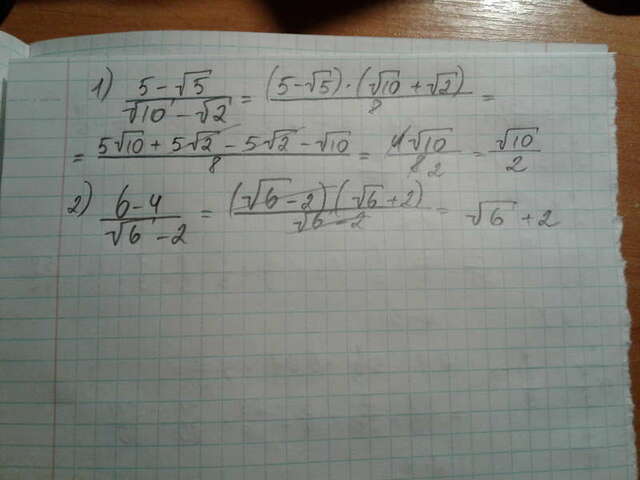 1) (5-√5)/(√10-√2) = ((5-√5)·(√10+√2))/8 =
= (5√10+5√2-5√2-√10)/8 = 4√10/8 2 = √10/2
2) (6-4)/(√6-2) = ((√6-2)(√6+2))/(√6-2) = √6+2